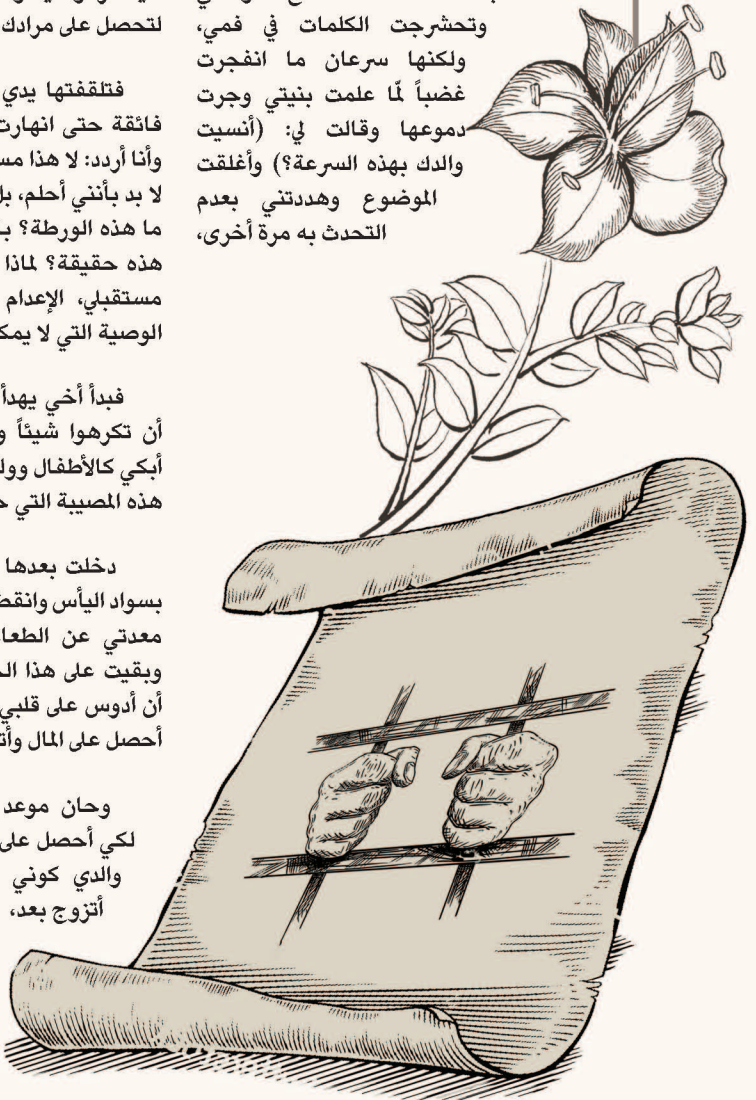 وتحشرجت الكلمات في فمي،
ولكنها سرعان ما انفجرت
غضباً لمّا علمت بنيتي وجرت
دموعها وقالت لي: (أنسيت
والدك بهذه السرعة؟) وأغلقت
الموضوع وهددتني بعدم
التحدث به مرة أخرى،
لتحصل على مرادك
فتلقفتها يدي
فائقة حتى انهارت
وأنا أردد: لا هذا
لا بد بأنني أحلم،
ما هذه الورطة؟
هذه حقيقة؟ لماذا
مستقبلي، الإعدام
الوصية التي لا
فبدأ أخي يهدأ
أن تكرهوا شيئاً
أبكي كالأطفال
هذه المصيبة التي
دخلت بعدها
بسواد اليأس
معدتي عن
وبقيت على هذا
أن أدوس على قلبي
أحصل على المال
وحان موعد
لكي أحصل على
والدي كوني
أتزوج بعد،